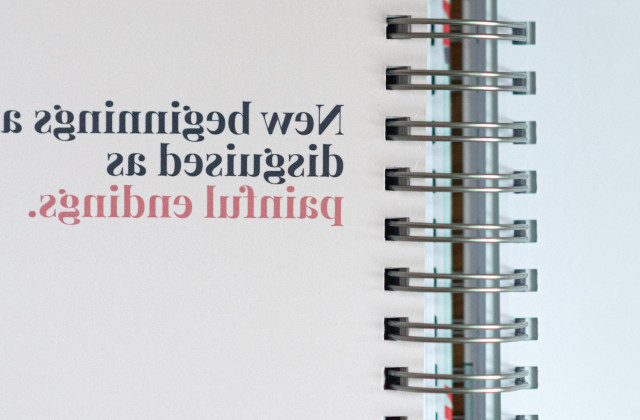 New beginnings a
disguised as
painful endings.